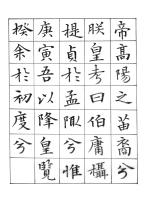 帝高陽之苗裔兮
朕皇考曰伯庸攝
提貞於孟陬兮惟
庚寅吾以降皇覽
揆余於初度兮